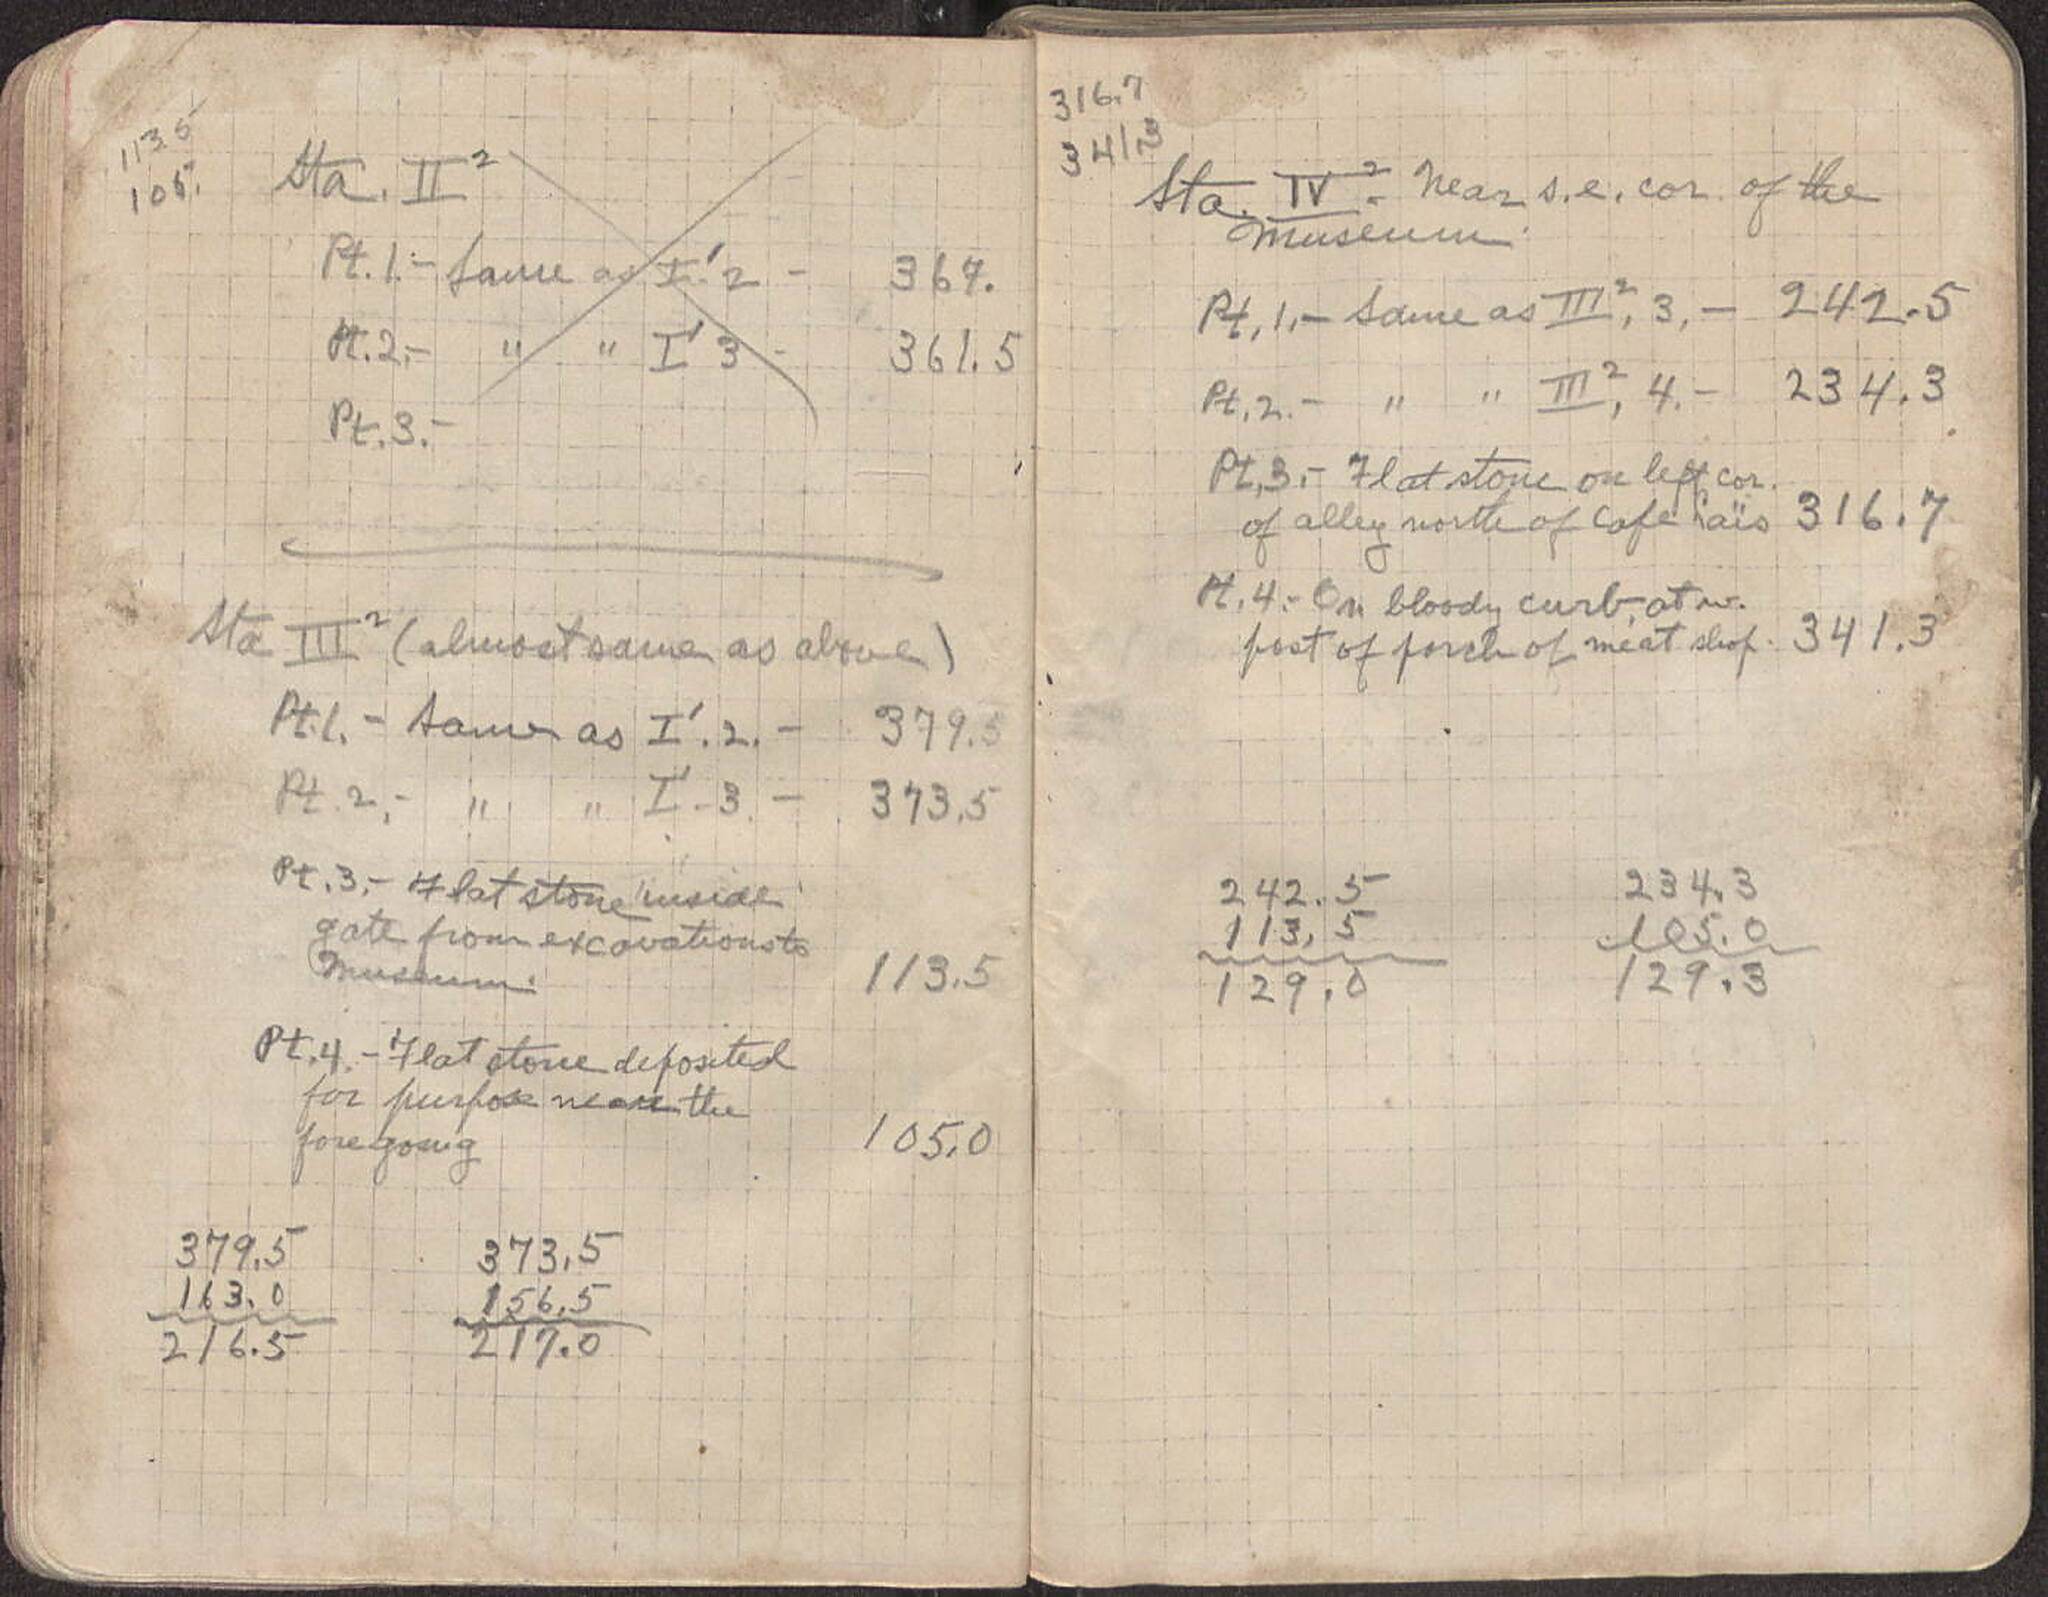 113 5
105.
Sta. II²
Pt. 1.- Same as I'. 2 - 367.
Pt. 2.- " " I' 3 - 361.5
Pt. 3.-
Sta III² (almost same as above)
Pt. 1. - Same as I'. 2. - 379.5
Pt. 2.- " " I'. 3. - 373.5
Pt. 3.- Flat stone inside
gate from excavations to
Museum. 113.5
Pt. 4. - Flat stone deposited
for purpose near the
foregoing 105.0
379.5 373.5
163.0 156.5
216.5 217.0
316.7
341 3
Sta. IV².- Near s.e. cor. of the
Museum.
Pt. 1.- Same as III², 3. - 242.5
Pt. 2.- " " III², 4. - 234.3
Pt. 3.- Flat stone on left cor.
of alley north of Cafe 316.7
Pt. 4.- On bloody curb, at w.
post of porch of meat shop. 341.3
242.5 234.3
113.5 105.0
129.0 129.3